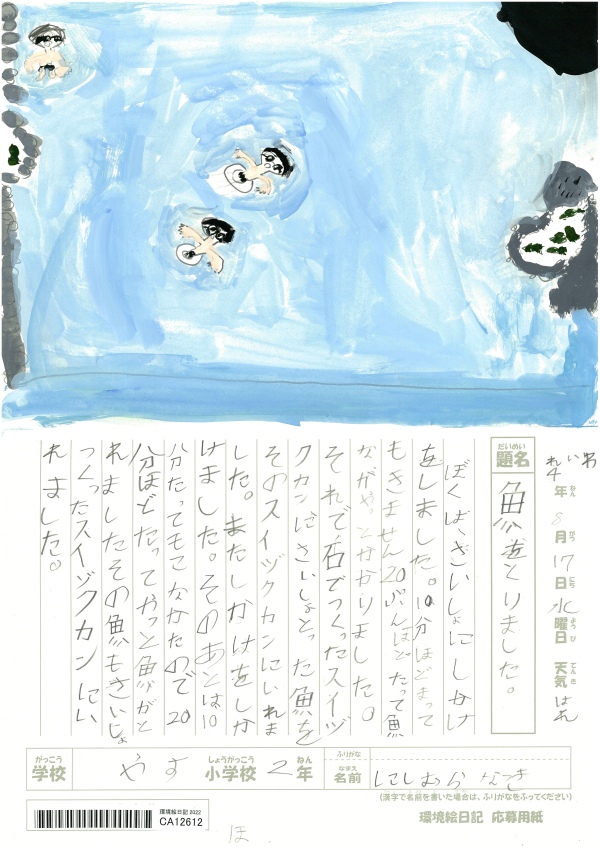 れい和4年8月17日水曜日 天気 はれ
題名 魚をとりました。
ぼくは、さいしょにしかけ
をしました。10分ほどまって
もきません20ぷんほどたって魚
ながやっとかかりました。
それで石でつくったスイヅ
クカンにさいしょとった魚を
そのスイヅクカンにいれま
した。またしかけをしか
けました。そのあとは10
分たってもこなかたので20
分ほどたってやっと魚がと
れましたその魚もさいしょ
つくったスイヅクカンにい
れました。
学校 やす 小学校 2年
ふりがな
名前 にしむら なつき
(漢字で名前を書いた場合は、ふりがなをふってください)
環境絵日記 2022
CA12612
環境絵日記 応募用紙
ほ